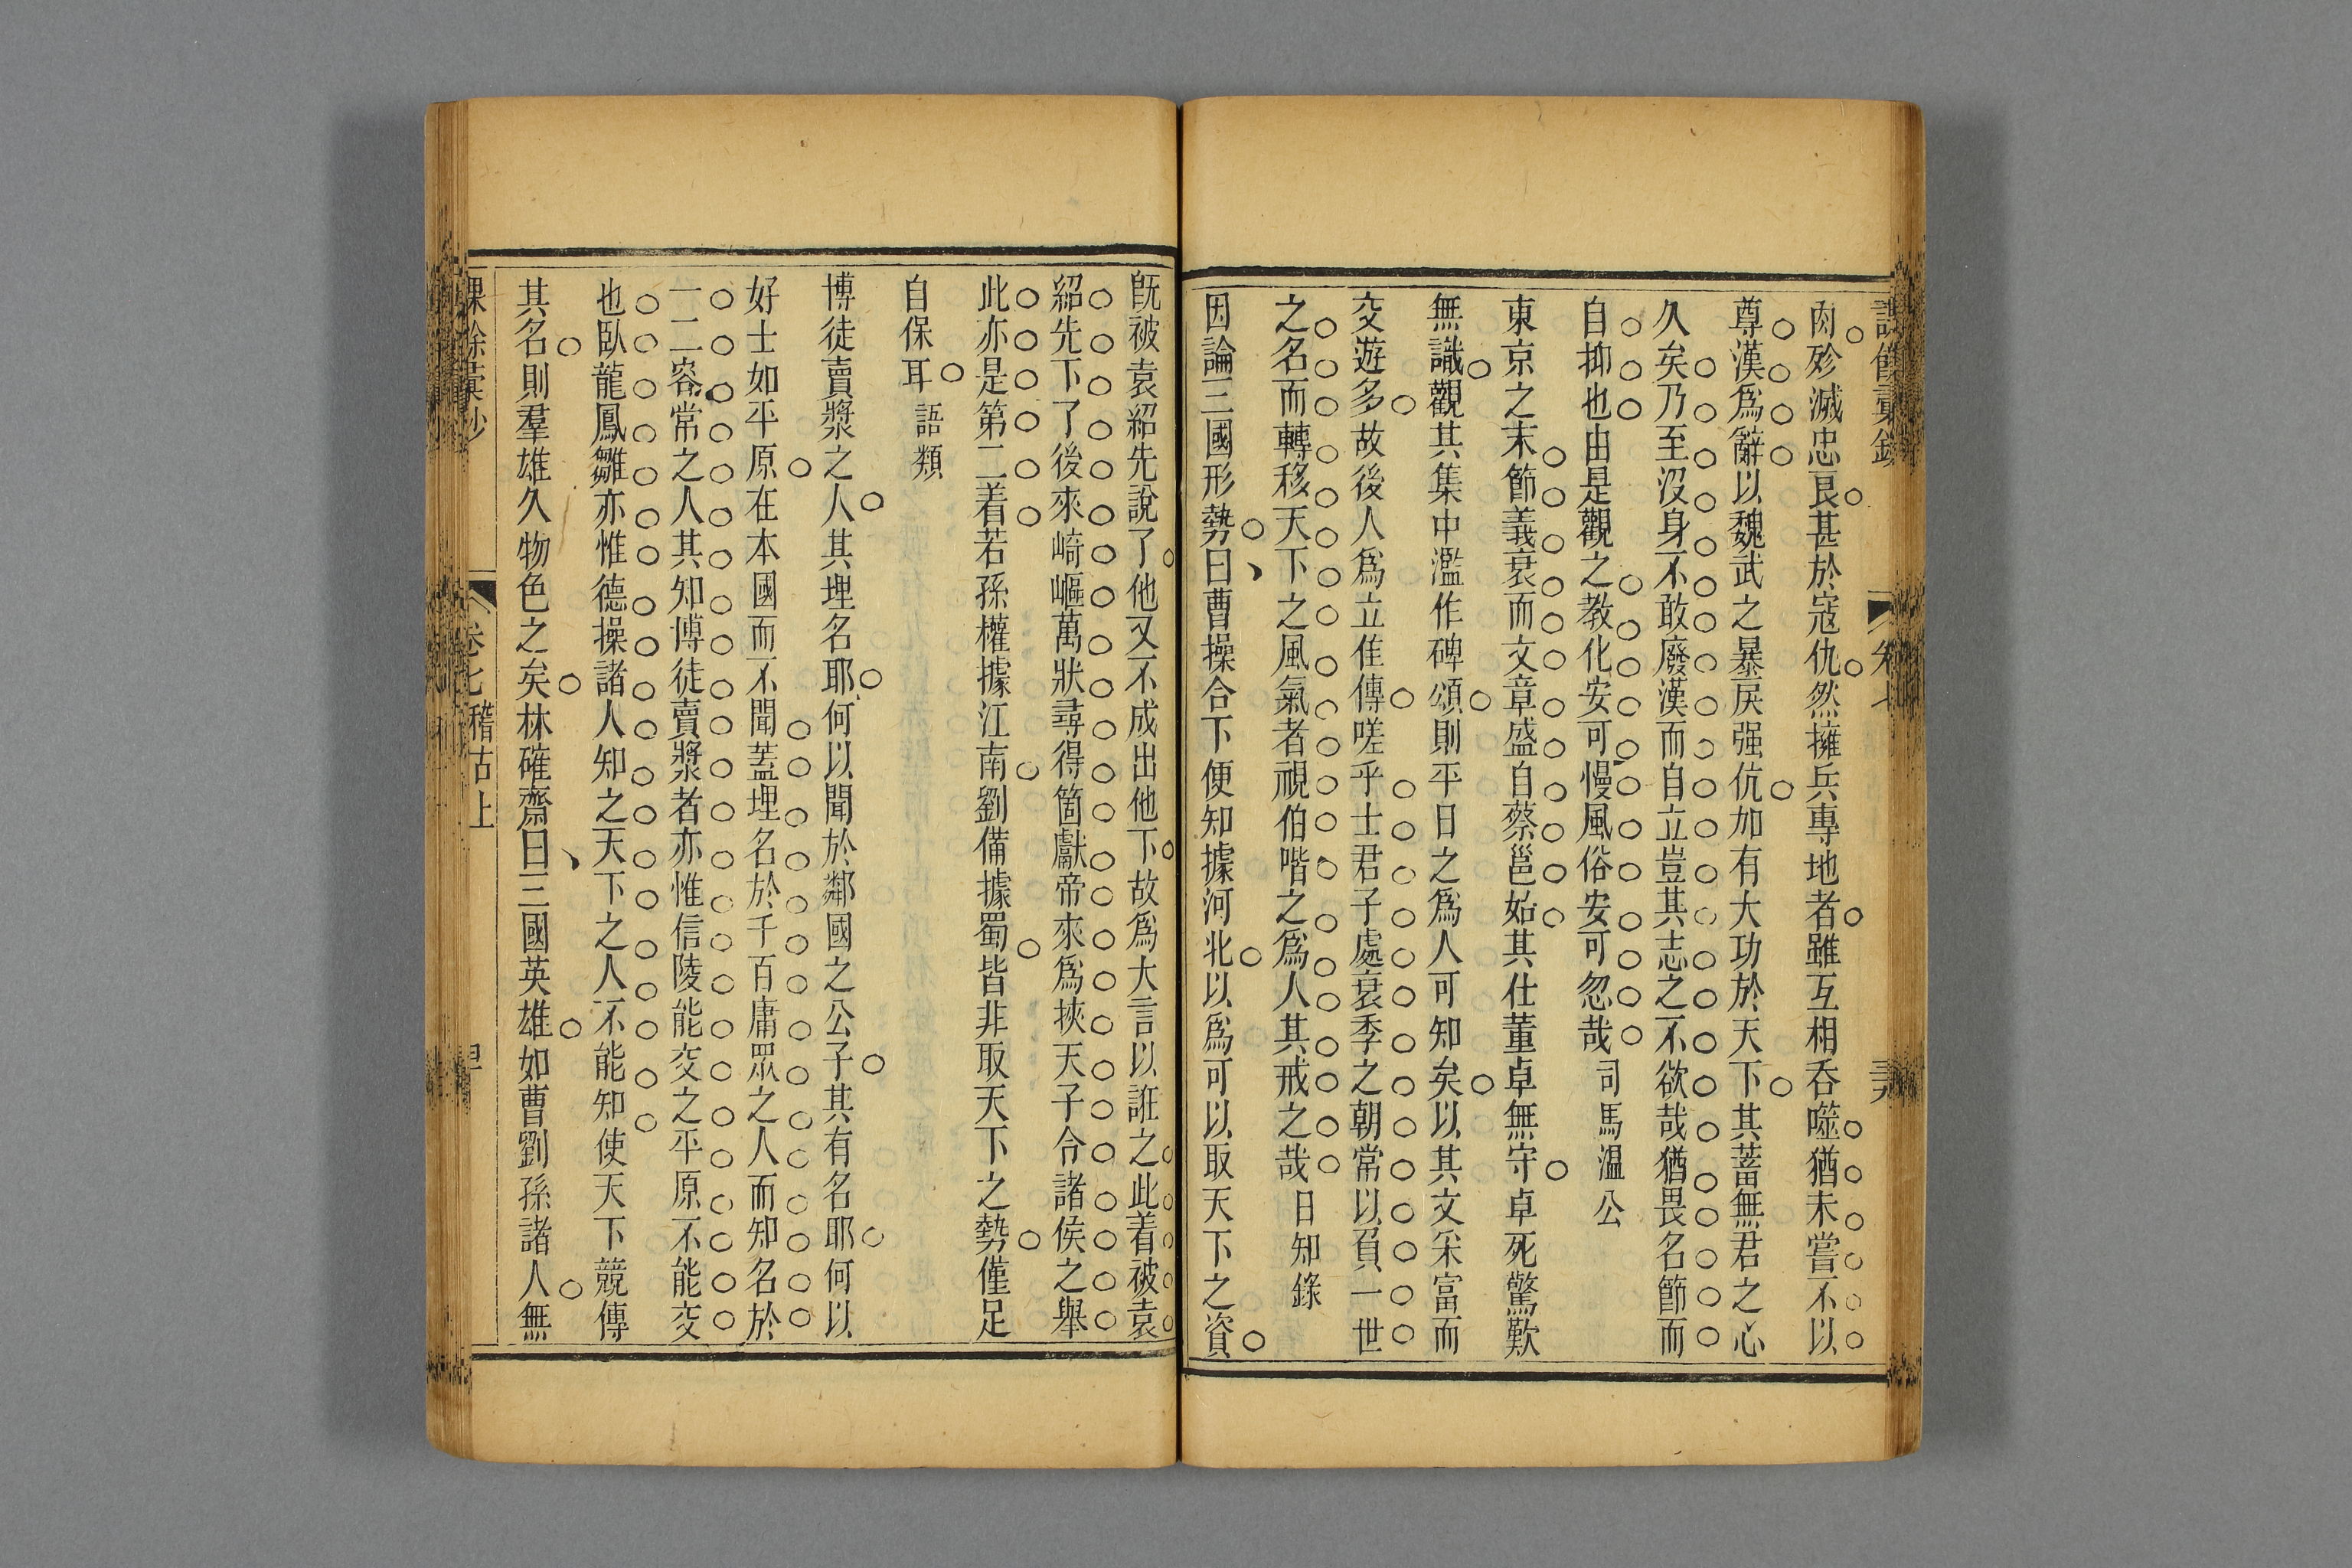 肉殄滅忠良甚於寇仇然擁兵專地者雖互相吞噬猶未嘗不以
尊漢爲辭以魏武之暴戾强伉加有大功於天下其蓄無君之心
久矣乃至沒身不敢廢漢而自立豈其志之不欲哉猶畏名節而
自抑也由是觀之教化安可慢風俗安可忽哉 司馬溫公
東京之末節義衰而文章盛自蔡邕始其仕董卓無守卓死驚歎
無識觀其集中濫作碑頌則平日之爲人可知矣以其文采富而
交遊多故後人爲立佳傳嗟乎士君子處衰季之朝常以負一世
之名而轉移天下之風氣者視伯喈之爲人其戒之哉 日知錄
因論三國形勢曰曹操合下便知據河北以爲可以取天下之資
旣被袁紹先說了他又不成出他下故爲大言以誑之此着被袁
紹先下了後來崎嶇萬狀尋得箇獻帝來爲挾天子令諸侯之舉
此亦是第二着若孫權據江南劉備據蜀皆非取天下之勢僅足
自保耳 語類
博徒賣漿之人其埋名耶何以聞於鄰國之公子其有名耶何以
好士如平原在本國而不聞蓋埋名於千百庸眾之人而知名於
一二容常之人其知博徒賣漿者亦惟信陵能交之平原不能交
也臥龍鳳雛亦惟德操諸人知之天下之人不能知使天下競傳
其名則羣雄久物色之矣林確齋曰三國英雄如曹劉孫諸人無
卷七 稽古上